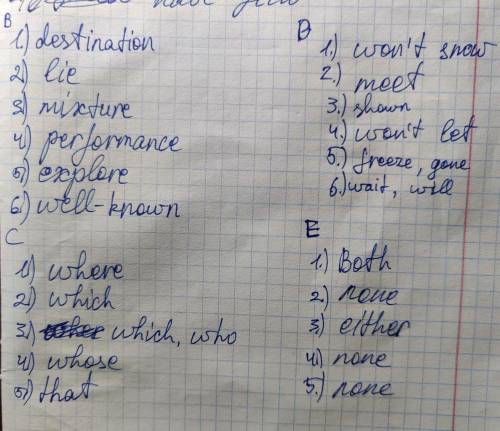 have
B
1.) destination
2) lie
3) mixture
4) performance
5) explore
6) well-known
C
1) where
2) which
3) which, who
4) whose
5) that
D
1.) won't snow
2.) meet
3.) shown
4.) won't let
5.) freeze, gone
6.) wait, will
E
1.) Both
2.) none
3.) either
4.) none
5.) none